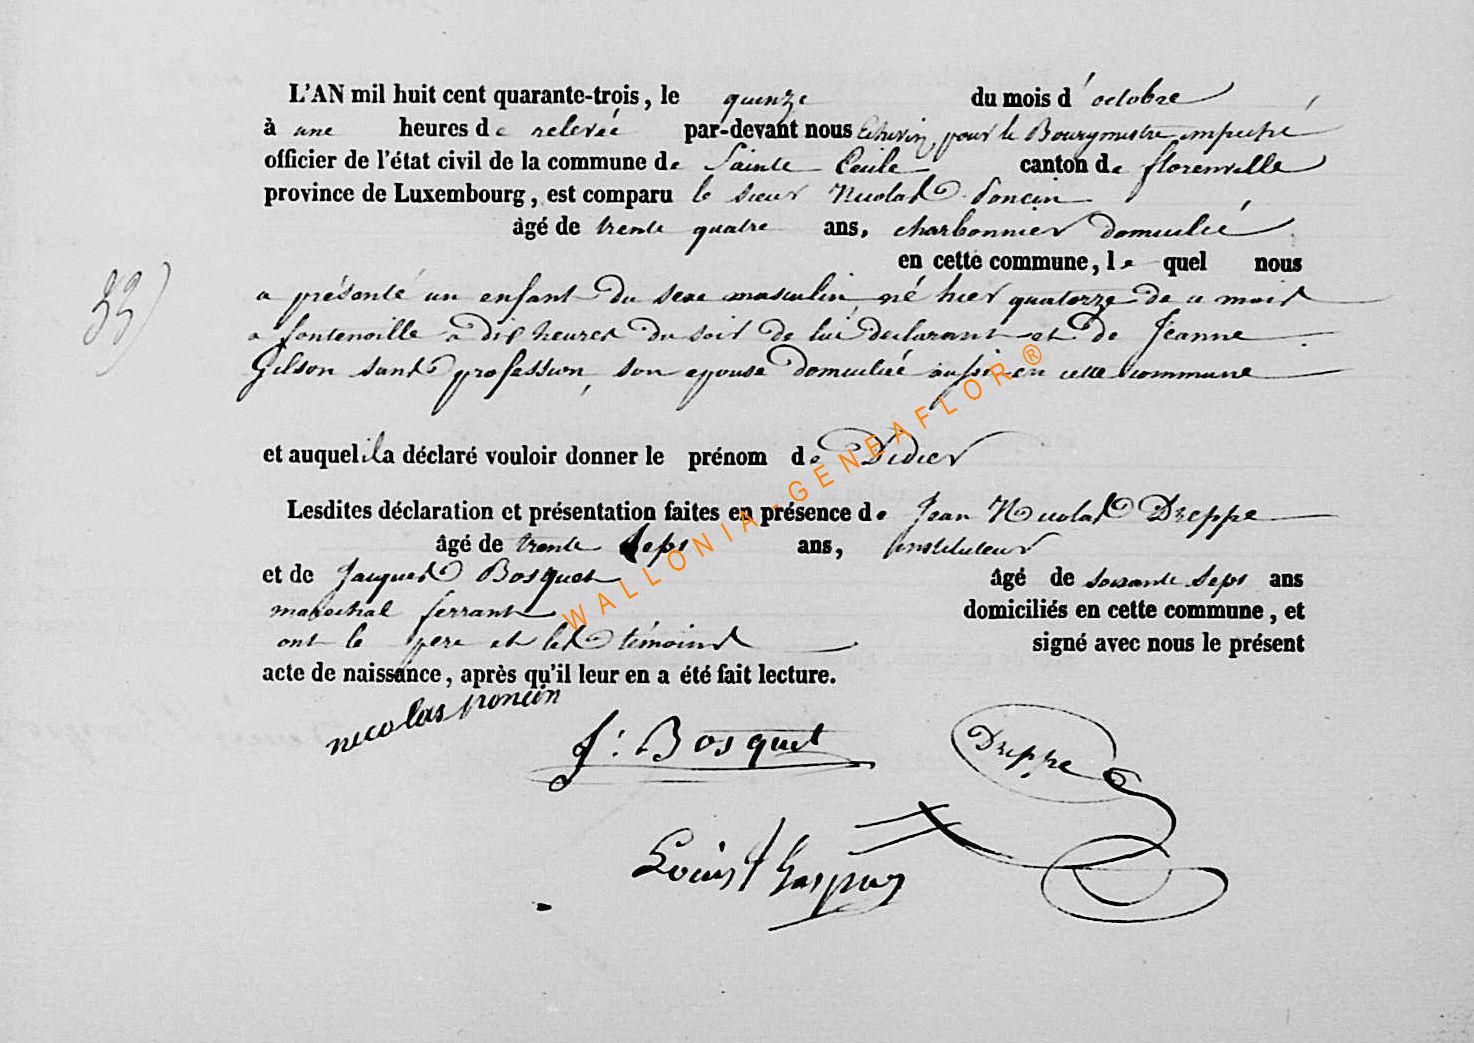 L'AN mil huit cent quarante-trois, le quinze du mois d'octobre
à une heures de relevée par-devant nous Echevin pour le Bourgmestre empeché
officier de l'état civil de la commune de Sainte Cecile canton de florenville
province de Luxembourg, est comparu le sieur Nicolas Poncin
âgé de trente quatre ans, charbonnier domicilié
en cette commune, le quel nous
33)
a présenté un enfant du sexe masculin, né hier quatorze de ce mois
a fontenoille a dix heures du soir de lui déclarant et de Jeanne
Gilson sans profession, son epouse domiciliée aussi en cette commune
et auquel il a déclaré vouloir donner le prénom de Didier
Lesdites déclaration et présentation faites en présence de Jean Nicolas Dreppe
âgé de trente sept ans, instituteur
et de Jacques Bosquet âgé de soixante sept ans
marechal ferrant domiciliés en cette commune, et
ont le pere et les témoins signé avec nous le présent
acte de naissance, après qu'il leur en a été fait lecture.
nicolas poncin
J: Bosquet
Dreppe
Louis J Gaspar
WALLONIA-GENEAFLOR®